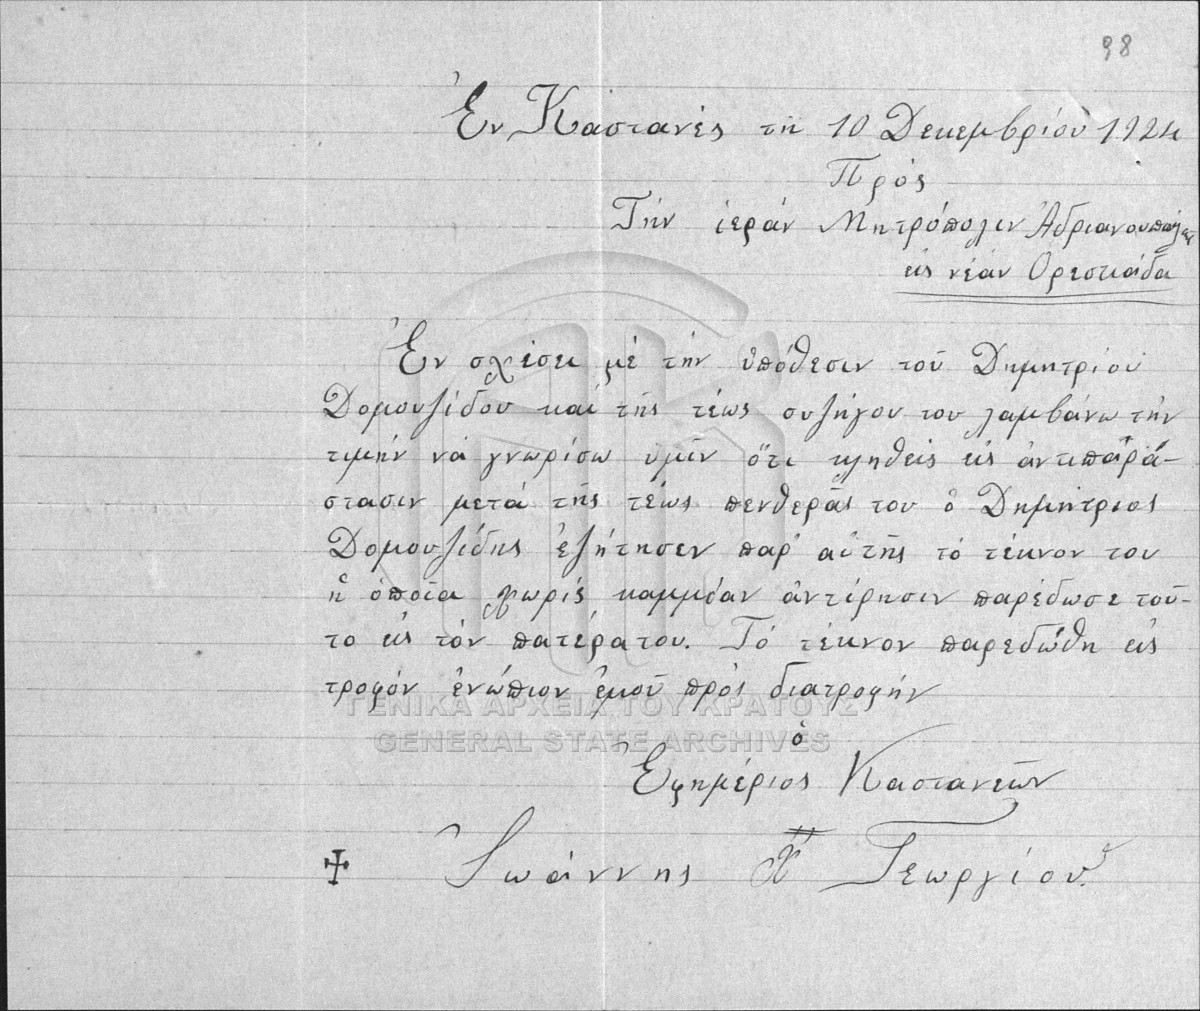 98
Ἐν Καστανὲς τῇ 10 Δεκεμβρίου 1924
Πρὸς
Τὴν ἱερὰν Μητρόπολιν Ἀδριανουπόλεως
εἰς νέαν Ορεστιάδα
Ἐν σχέσει μὲ τὴν ὑπόθεσιν τοῦ Δημητρίου
Δομουζίδου καὶ τῆς τέως συζήγου του λαμβάνω τὴν
τιμὴν νὰ γνωρίσω ὑμῖν ὅτι κληθεὶς εἰς ἀντιπαρά-
στασιν μετὰ τῆς τέως πενθερᾶς του ὁ Δημήτριος
Δομουζίδης ἐζήτησεν παρ' αὐτῆς τὸ τέκνον του
ἡ ὁποῖα χωρὶς καμμίαν ἀντίρησιν παρέδωσε τοῦ-
το εἰς τὸν πατέρα του. Τὸ τέκνον παρεδώθη εἰς
τροφὸν ἐνώπιον ἐμοῦ πρὸς διατροφήν
ΓΕΝΙΚΑ ΑΡΧΕΙΑ ΤΟΥ ΚΡΑΤΟΥΣ
GENERAL STATE ARCHIVES
ὁ
Ἐφημέριος Καστανεῶν
✠ Ἰωάννης Χ Γεωργίου